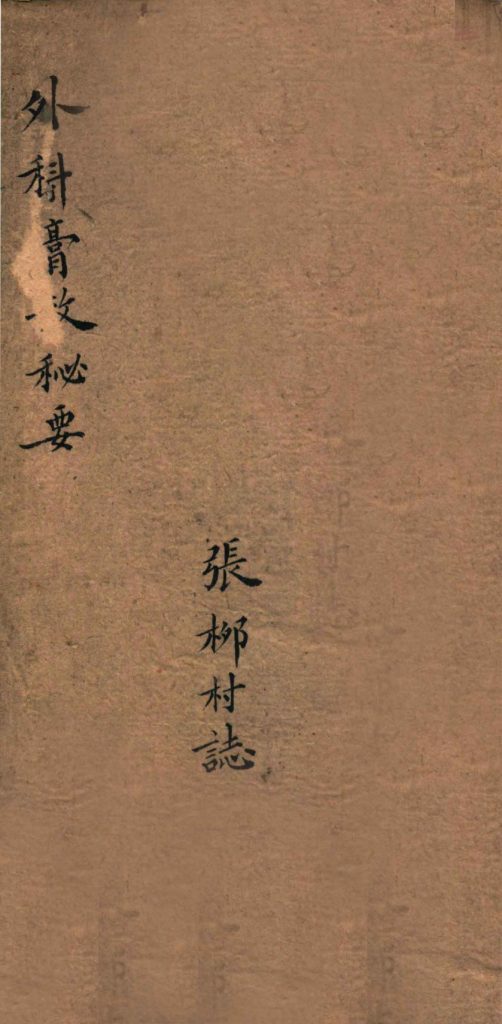 外科膏秘要
張柳村誌